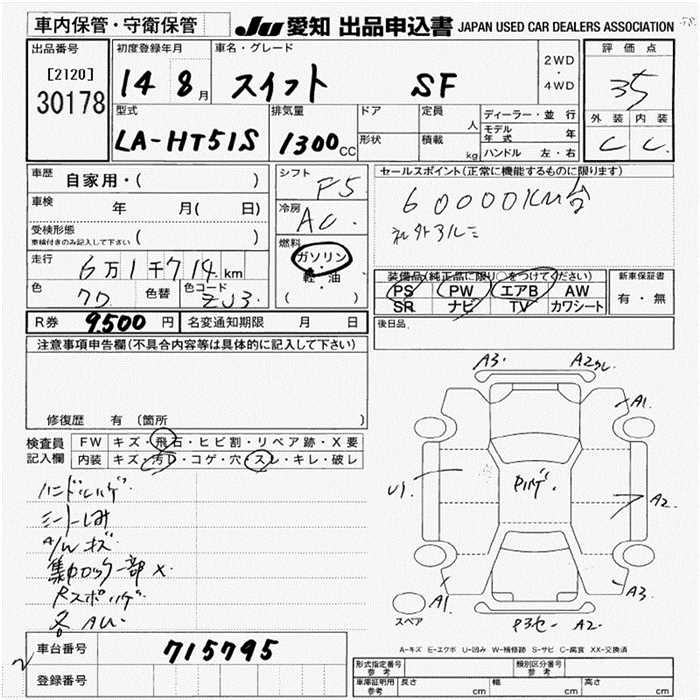 車内保管・守衛保管
JU 愛知 出品申込書 JAPAN USED CAR DEALERS ASSOCIATION
出品番号
[2120]
30178
初度登録年月
14 8月
車名・グレード
スイフト SF
2WD
・
4WD
評価点
35
外装 内装
C C
型式
LA-HT51S
排気量
1300CC
ドア
形状
定員
人
積載
kg
ディーラー・並行
モデル年式 年
ハンドル 左・右
車歴 自家用・( )
車検 年 月( 日)
受検形態
車検付きのみ記入して下さい ( )
走行 6万1千714km
色 色替 色コード ZJ3
R券 9,500円 名変通知期限 月 日
シフト F5
冷房 AC
燃料
ガソリン
・
軽・油
( )
セールスポイント(正常に機能するものに限ります)
60000KM台
社外アルミ
装備品(純正品に限り○をつけてください)
PS PW エアB AW
SR ナビ TV カワシート
新車保証書
有・無
後日品
注意事項申告欄(不具合内容等は具体的に記入して下さい)
修復歴 有(箇所 )
検査員記入欄
FW キズ・飛石・ヒビ割・リペア跡・X要
内装 キズ・汚レ・コゲ・穴・スレ・キレ・破レ
ハンドルハゲ
シートしみ
A/Wキズ
集中ロック一部X
Rスポハゲ
各AU
車台番号 715795
登録番号
A3
A2
A1
U1
A2
A1
A3
A2
スペア
A-キズ E-エクボ U-凹み W-補修跡 S-サビ C-腐食 XX-交換済
形式指定番号 参考
類別区分番号 参考
車庫証明用 参考 長さ cm 幅 cm 高さ cm